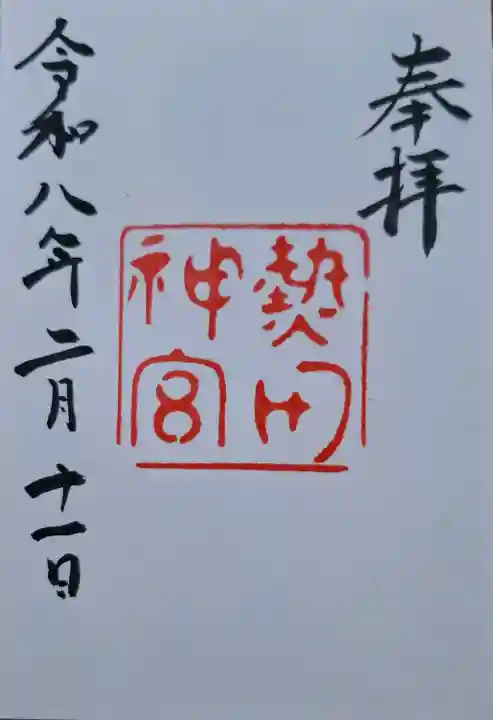 奉拝
熱田
神宮
令和八年二月十一日